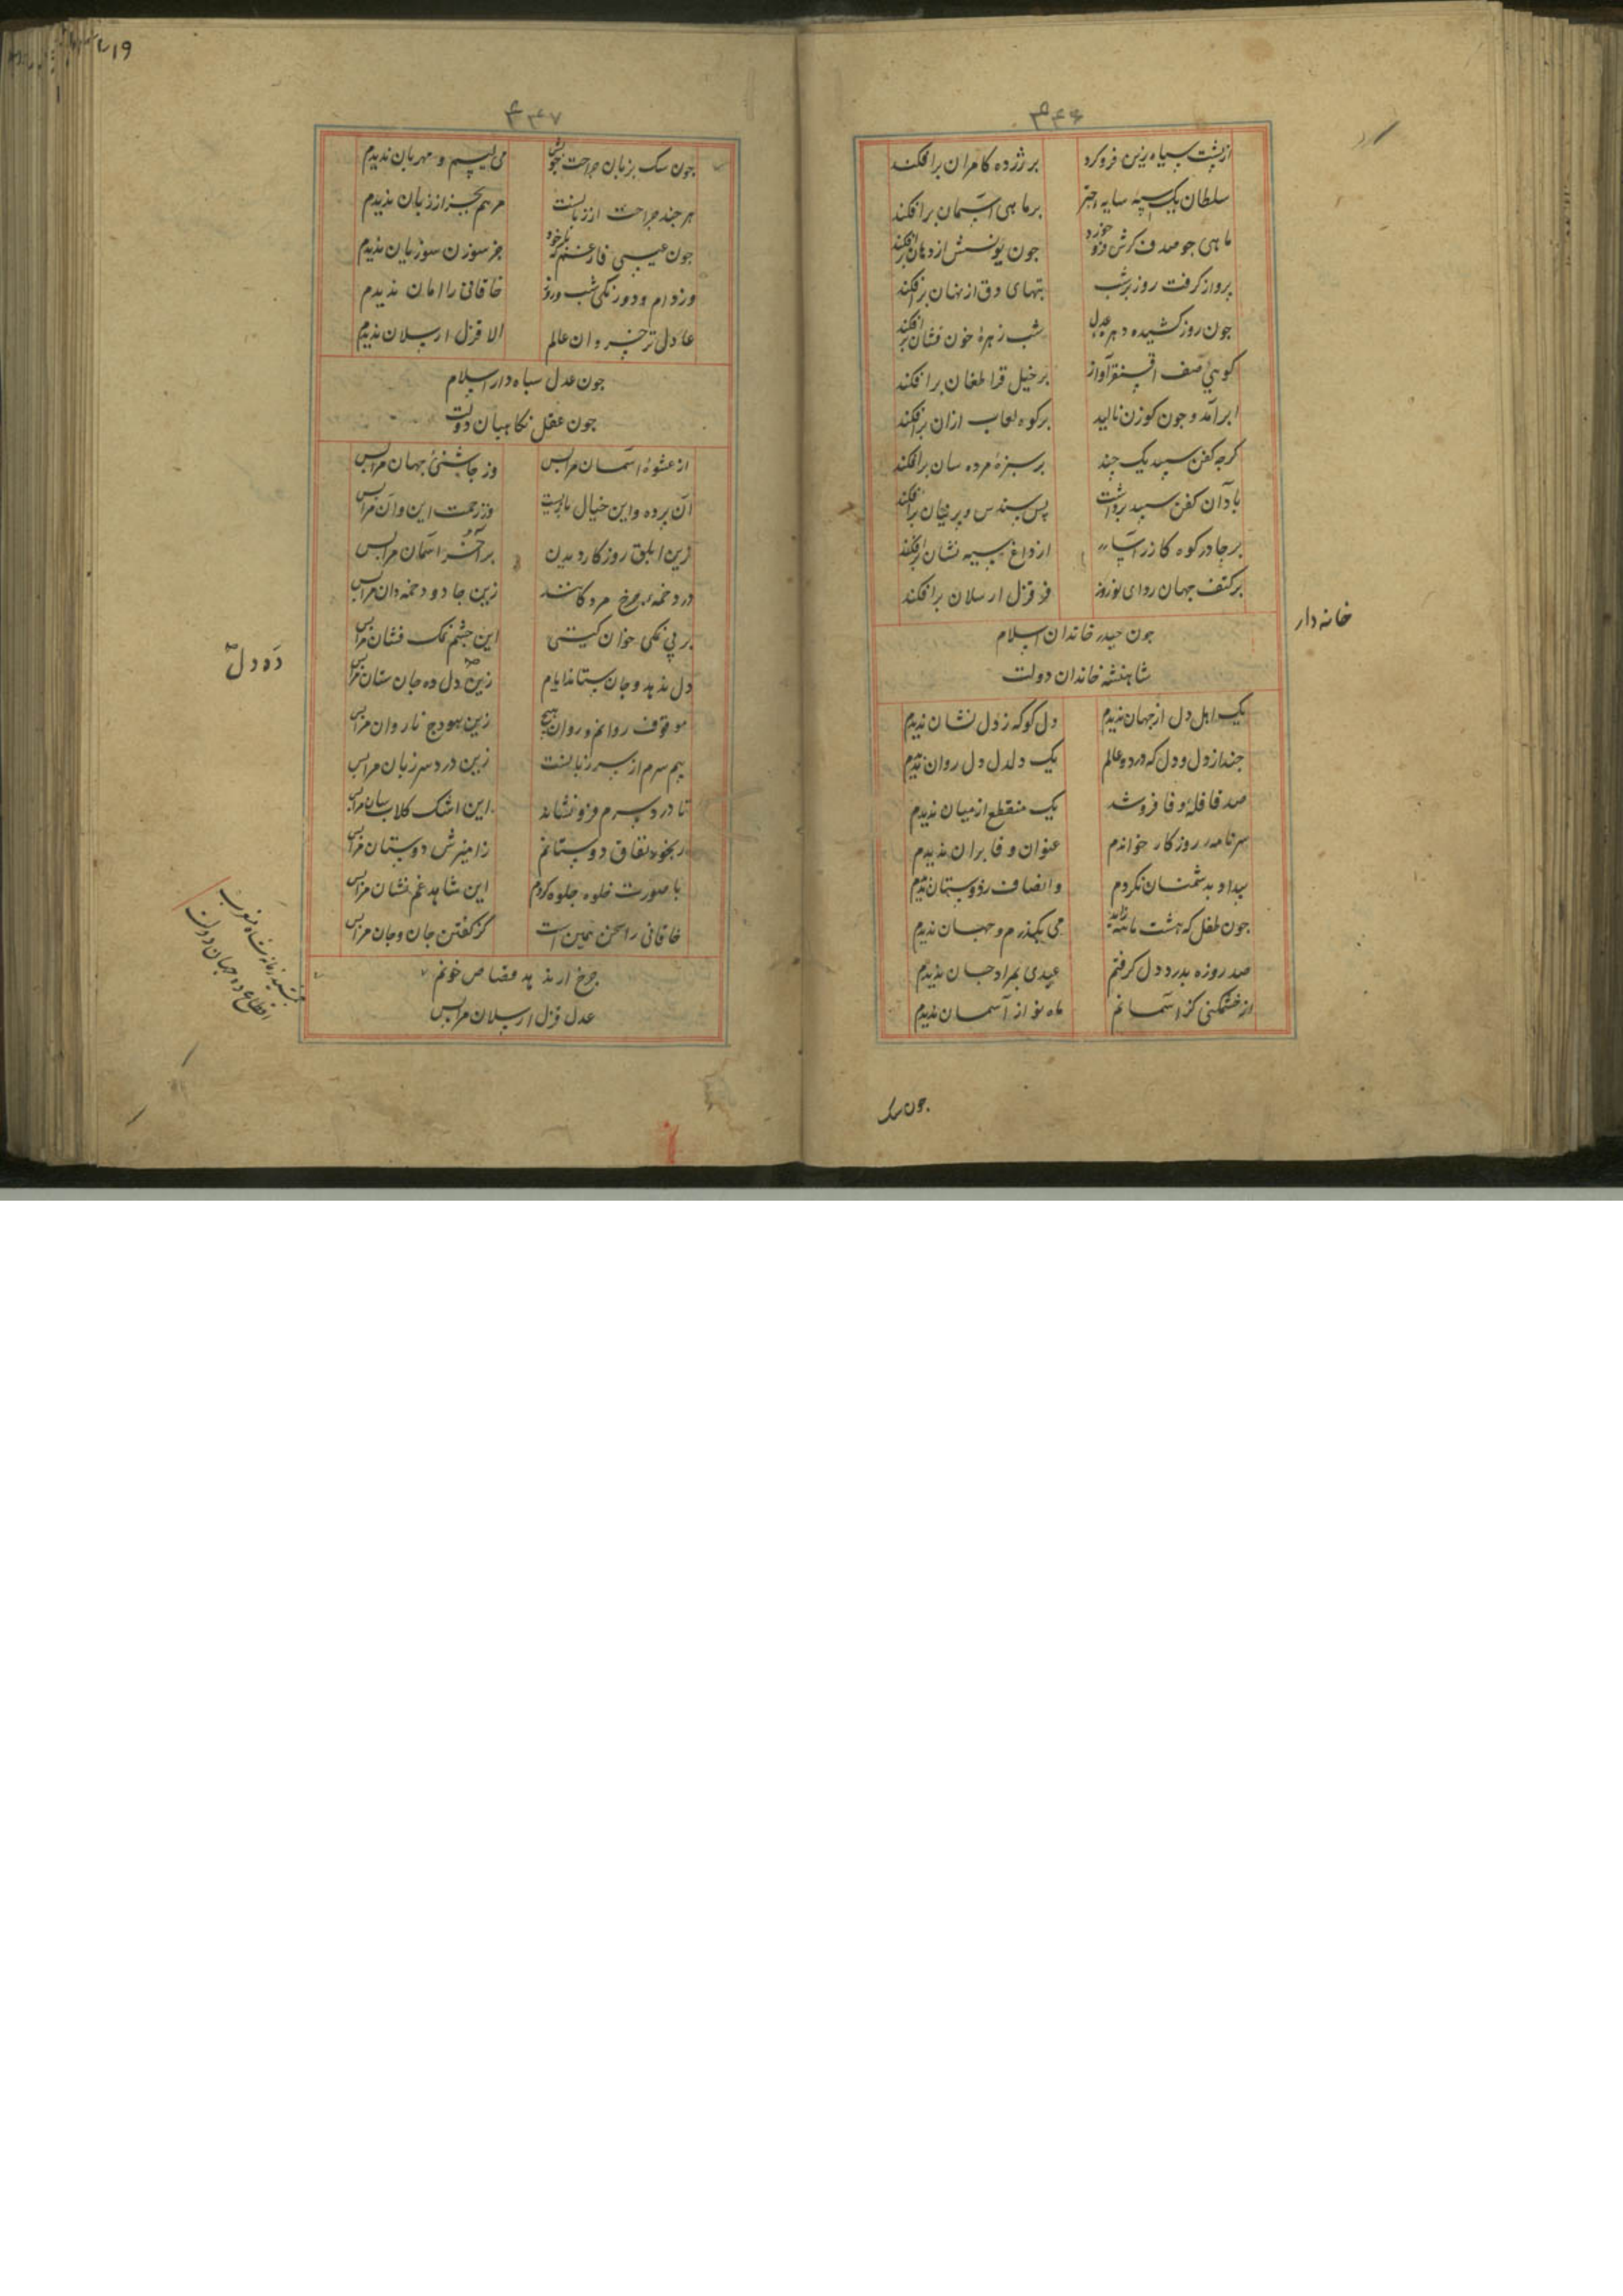 ۳۴۶
از پشت سیاه زین فروکرد
بر زرده کامران برافکند
سلطان یک اسپه سایه چتر
بر ماهی آسمان برافکند
ماهی چو صدف گرش فروخورد
چون یونسش از دهان برافکند
پرواز گرفت روز بر شب
تبهای دق از نهان برافکند
چون روز کشیده دهره عدل
شب زهرهٔ خون فشان برافکند
گوئی صف اقسنقر آواز
بر خیل قراطغان برافکند
ابر آمد و چون گوزن نالید
بر کوه لعاب ازان برافکند
کرچه کفن سپید یک چند
بر سبزهٔ مرده سان برافکند
باد آن کفن سپید برداشت
پس سندس و پرنیان برافکند
بر چادر کوه گازر آسا
از داغ سیه نشان برافکند
بر کتف جهان ردای نوروز
فر قزل ارسلان برافکند
خانه دار
چون حیدر خاندان اسلام
شاهنشه خاندان دولت
یک اهل دل از جهان ندیدم
دل کو که ز دل نشان ندیدم
چند از دل و دل که در دو عالم
یک دلدل دل روان ندیدم
صد قافلهٔ وفا فروشد
یک منقطع از میان ندیدم
سرنامه روزگار خواندم
عنوان وفا بران ندیدم
بیداد به دشمنان نکردم
وانصاف ز دوستان ندیدم
چون طفل که هشت ماهه زاید
می بگذرم و جهان ندیدم
صد روزه بدرد دل گرفتم
عیدی بمراد جان ندیدم
از خشمگنی کز آسمانم
ماه نو از آسمان ندیدم
چون سگ
۳۴۷
چون سگ بزبان جراحت خویش
می لیسم و مهربان ندیدم
هرچند جراحت از زبانست
مرهم بجز از زبان ندیدم
چون عیسی فارغم که با خود
جز سوزن سوزیان ندیدم
وز دام دورنگی شب و روز
خاقانی را امان ندیدم
عادل تر خسروان عالم
الا قزل ارسلان ندیدم
چون عدل سپاه دار اسلام
چون عقل نگاهبان دولت
از عشوهٔ آسمان مرا بس
وز چاشنئ جهان مرا بس
آن پرده و این خیال بازیست
وز زحمت این و آن مرا بس
زین ابلق روزگار دیدن
بر آخُر آسمان مرا بس
در دخمه چرخ مردگانند
زین جادو دخمه دان مرا بس
بر بی نمکی خوان گیتی
این چشم نمک فشان مرا بس
دل ندهد و جان ستاند ایام
زین دل ده جان ستان مرا بس
دَه دل
موقوف روانم و روان هیچ
زین هودج ناروان مرا بس
بیم سرم از سر زبانست
زین درد سر زبان مرا بس
تا درد سرم فرو نشاند
این اشک گلاب سان مرا بس
رنجور نفاق دوستانم
زامیزش دوستان مرا بس
با صورت خلوه جلوه کردم
این شاهد غم نشان مرا بس
خاقانی را سخن همین است
کز گفتن جان و جان مرا بس
جمشید زمانه شاه مغرب
اقطاع ده جهان دولت
چرخ ار ندهد قصاص خونم
عدل قزل ارسلان مرا بس